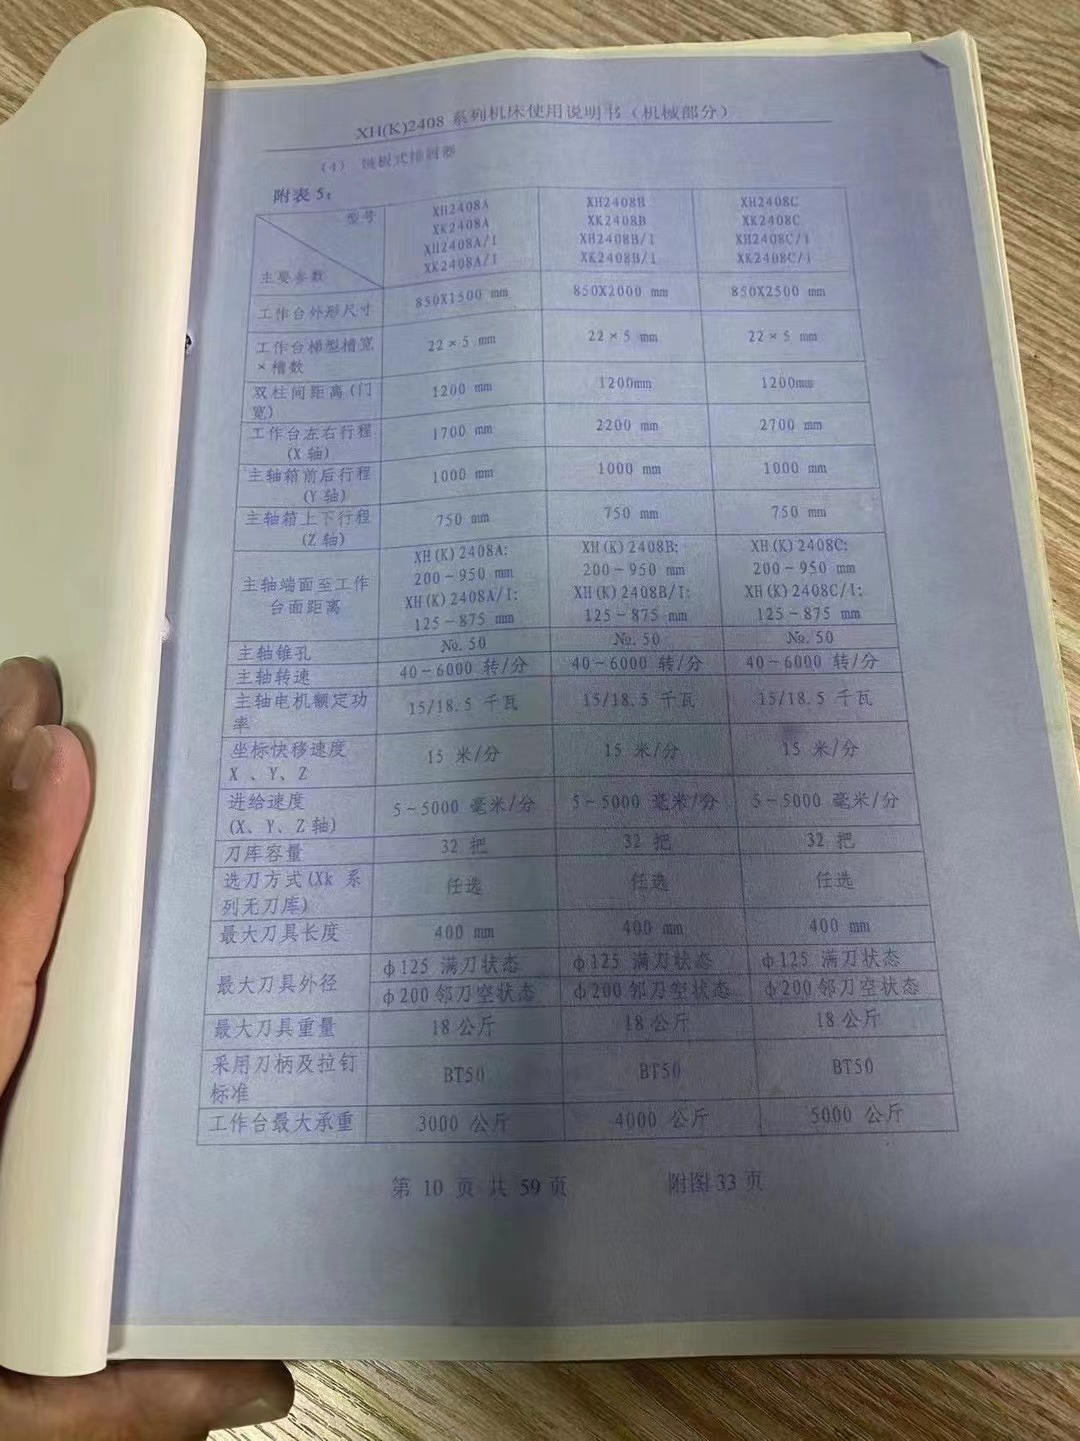 XH(K)2408 系列机床使用说明书（机械部分）
（4） 链板式排屑器
附表 5：
型号
主要参数
XH2408A
XK2408A
XH2408A/1
XK2408A/1
XH2408B
XK2408B
XH2408B/1
XK2408B/1
XH2408C
XK2408C
XH2408C/1
XK2408C/1
工作台外形尺寸 850X1500 mm 850X2000 mm 850X2500 mm
工作台梯型槽宽
×槽数
22×5 mm 22×5 mm 22×5 mm
双柱间距离(门
宽)
1200 mm 1200mm 1200mm
工作台左右行程
(X 轴)
1700 mm 2200 mm 2700 mm
主轴箱前后行程
(Y 轴)
1000 mm 1000 mm 1000 mm
主轴箱上下行程
(Z 轴)
750 mm 750 mm 750 mm
主轴端面至工作
台面距离
XH(K)2408A:
200~950 mm
XH(K)2408A/1:
125~875 mm
XH(K)2408B:
200~950 mm
XH(K)2408B/1:
125~875 mm
XH(K)2408C:
200~950 mm
XH(K)2408C/1:
125~875 mm
主轴锥孔 №.50 №.50 №.50
主轴转速 40~6000 转/分 40~6000 转/分 40~6000 转/分
主轴电机额定功
率
15/18.5 千瓦 15/18.5 千瓦 15/18.5 千瓦
坐标快移速度
X 、Y、Z
15 米/分 15 米/分 15 米/分
进给速度
(X、Y、Z 轴)
5~5000 毫米/分 5~5000 毫米/分 5~5000 毫米/分
刀库容量 32 把 32 把 32 把
选刀方式(Xk 系
列无刀库)
任选 任选 任选
最大刀具长度 400 mm 400 mm 400 mm
最大刀具外径
φ125 满刀状态 φ125 满刀状态 φ125 满刀状态
φ200 邻刀空状态 φ200 邻刀空状态 φ200 邻刀空状态
最大刀具重量 18 公斤 18 公斤 18 公斤
采用刀柄及拉钉
标准
BT50 BT50 BT50
工作台最大承重 3000 公斤 4000 公斤 5000 公斤
第 10 页 共 59 页 附图 33 页